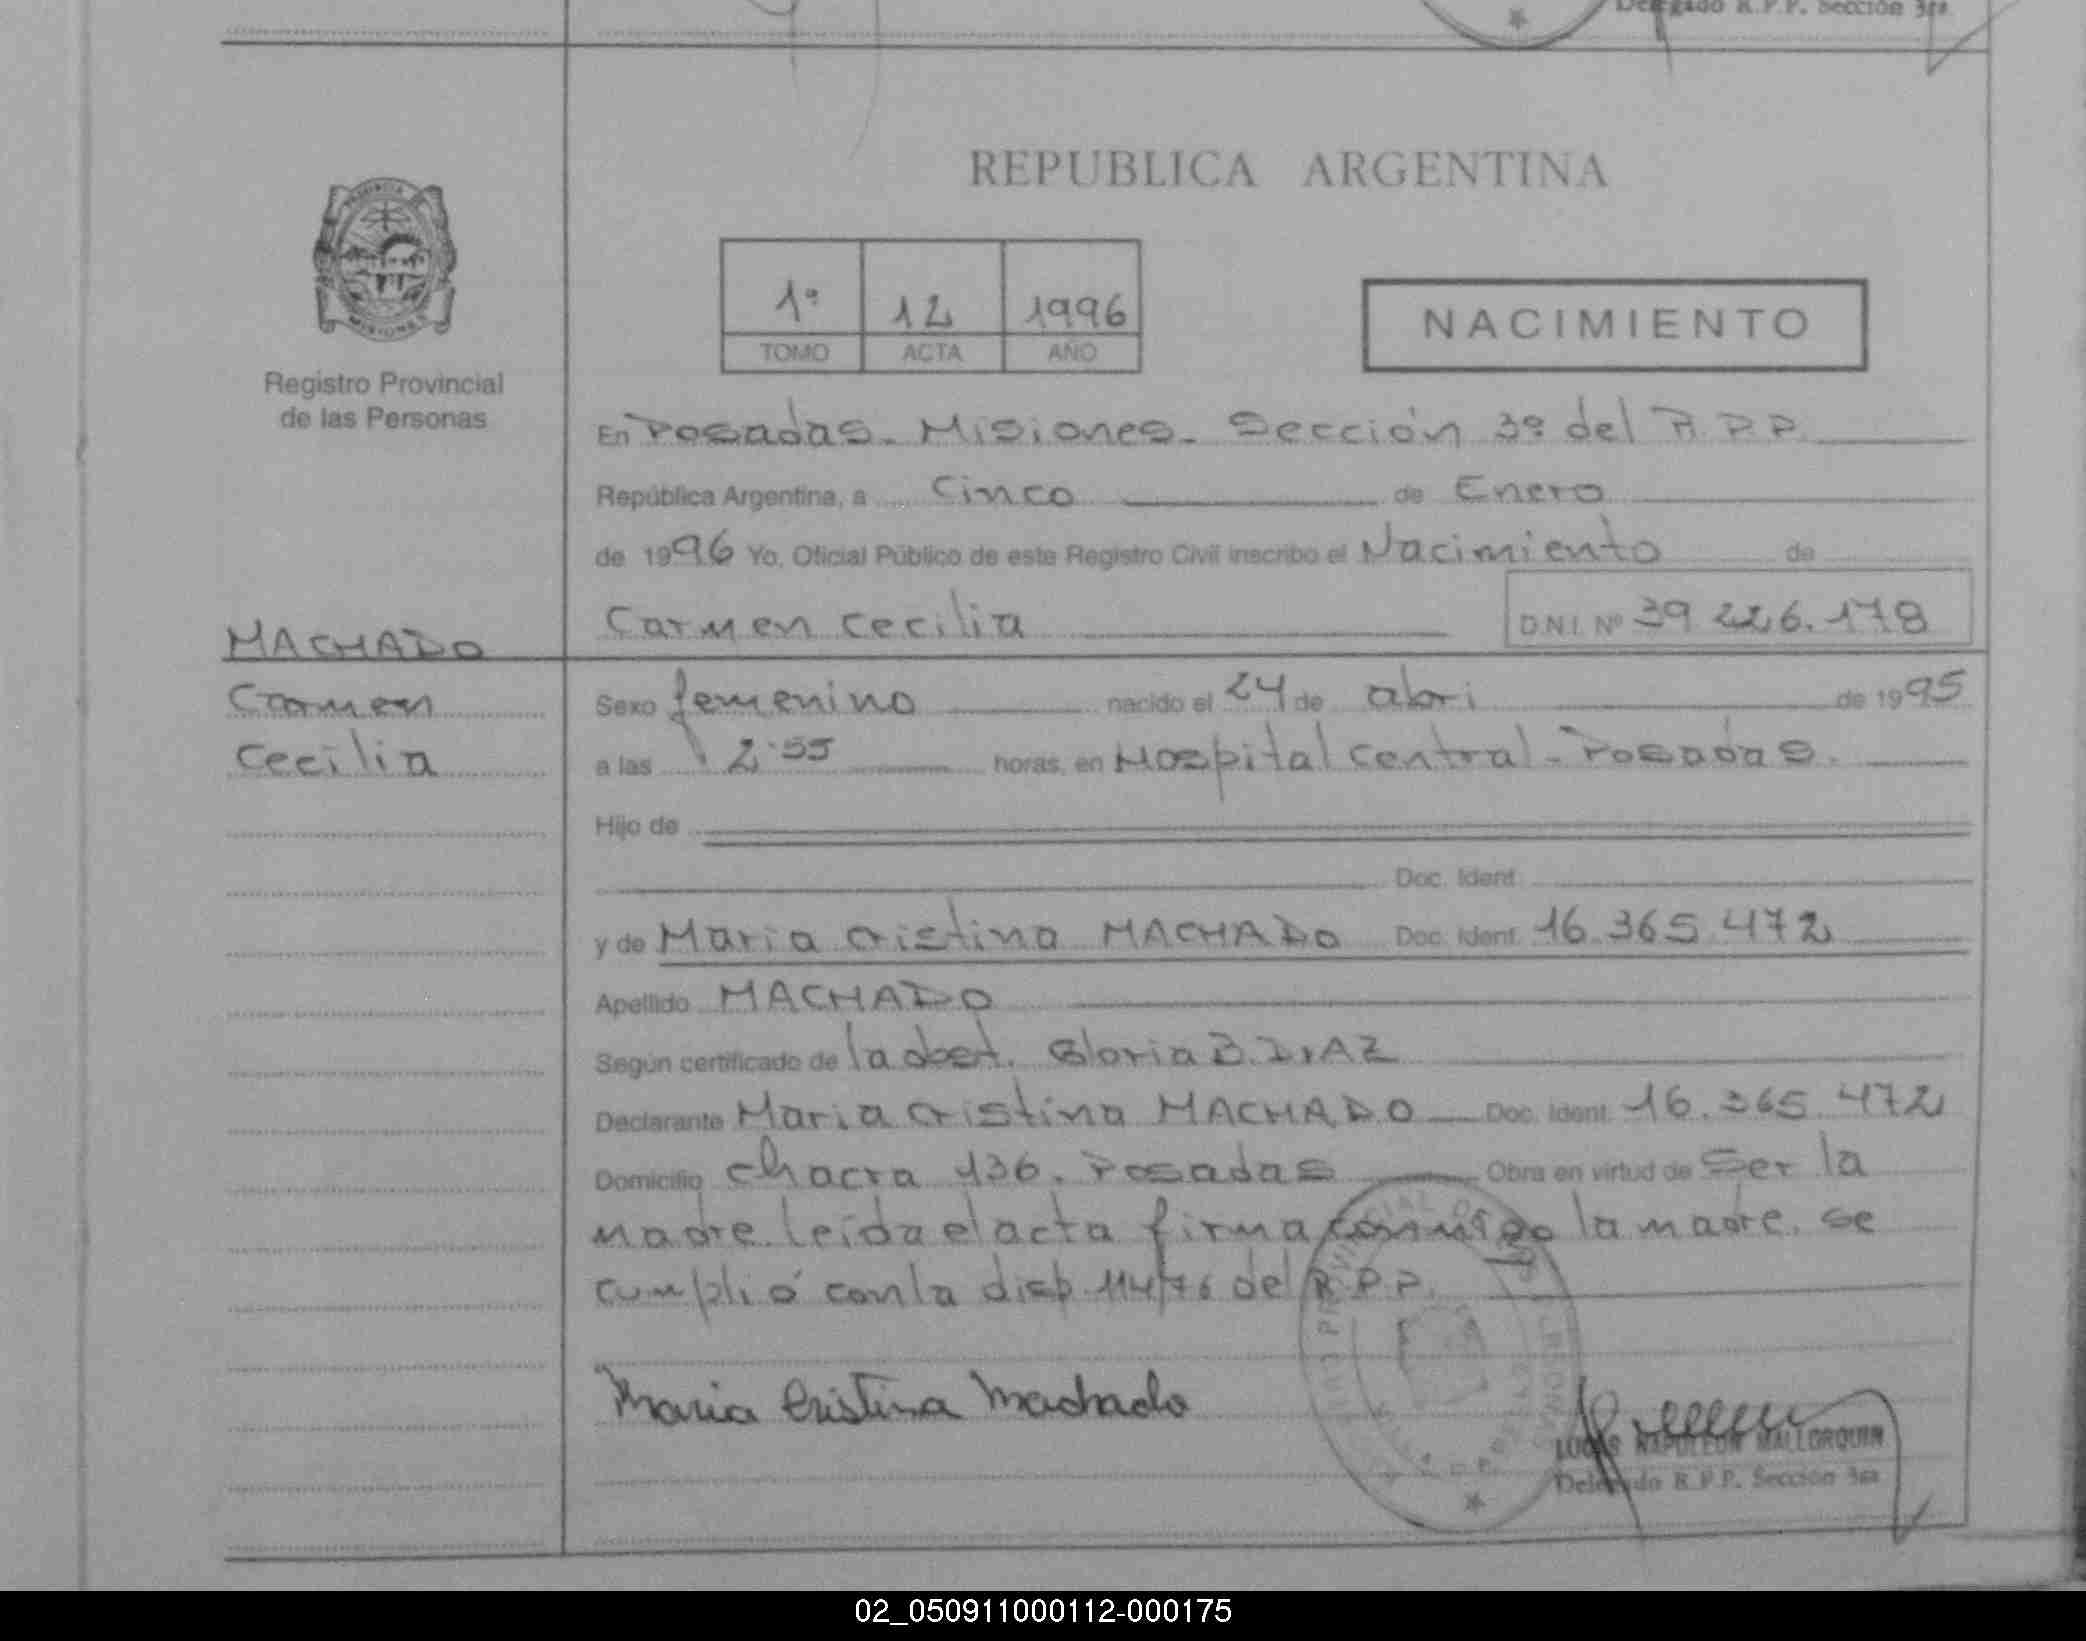 Delegado R.P.P. Sección 3ra
REPUBLICA ARGENTINA
PROVINCIA
MISIONES
1º 12 1996
TOMO ACTA AÑO
NACIMIENTO
Registro Provincial
de las Personas
En Posadas - Misiones - Sección 3º del R.P.P.
República Argentina, a Cinco de Enero
de 1996 Yo, Oficial Público de este Registro Civil inscribo el Nacimiento de
Carmen Cecilia D.N.I. Nº 39.226.178
MACHADO
Carmen
Cecilia
Sexo femenino nacido el 24 de abri de 1995
a las 2:55 horas, en Hospital Central - Posadas.
Hijo de
Doc. Ident.
y de Maria Cristina MACHADO Doc. Ident. 16.365.472
Apellido MACHADO
Según certificado de la obst. Gloria B. DIAZ
Declarante Maria Cristina MACHADO Doc. Ident. 16.365.472
Domicilio Chacra 136. Posadas Obra en virtud de Ser la
madre. leída el acta firma conmigo la madre. Se
cumplió con la disp. 114/76 del R.P.P.
Maria Cristina Machado
LUCAS NAPOLEON MALLORQUIN
Delegado R.P.P. Sección 3ra
02_050911000112-000175